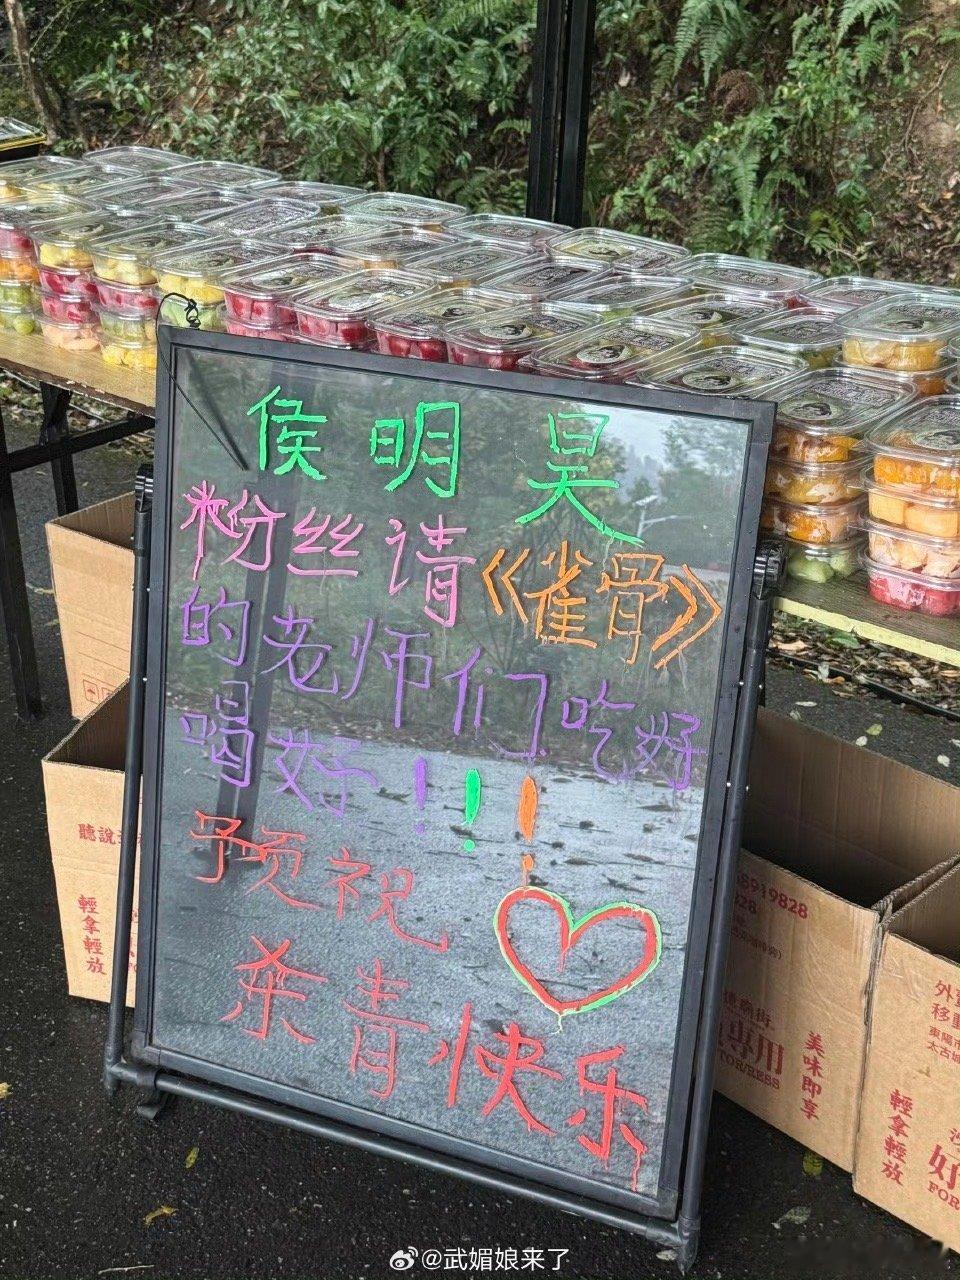 侯明昊
粉丝请《雀骨》
的老师们吃好
喝好!!!
预祝
杀青快乐
聽說
輕拿輕放
68919828
828
專用
FOR/RESS
美味即享
外
移動
東陽市
太古城
輕拿輕放
好
FOR
@武媚娘来了